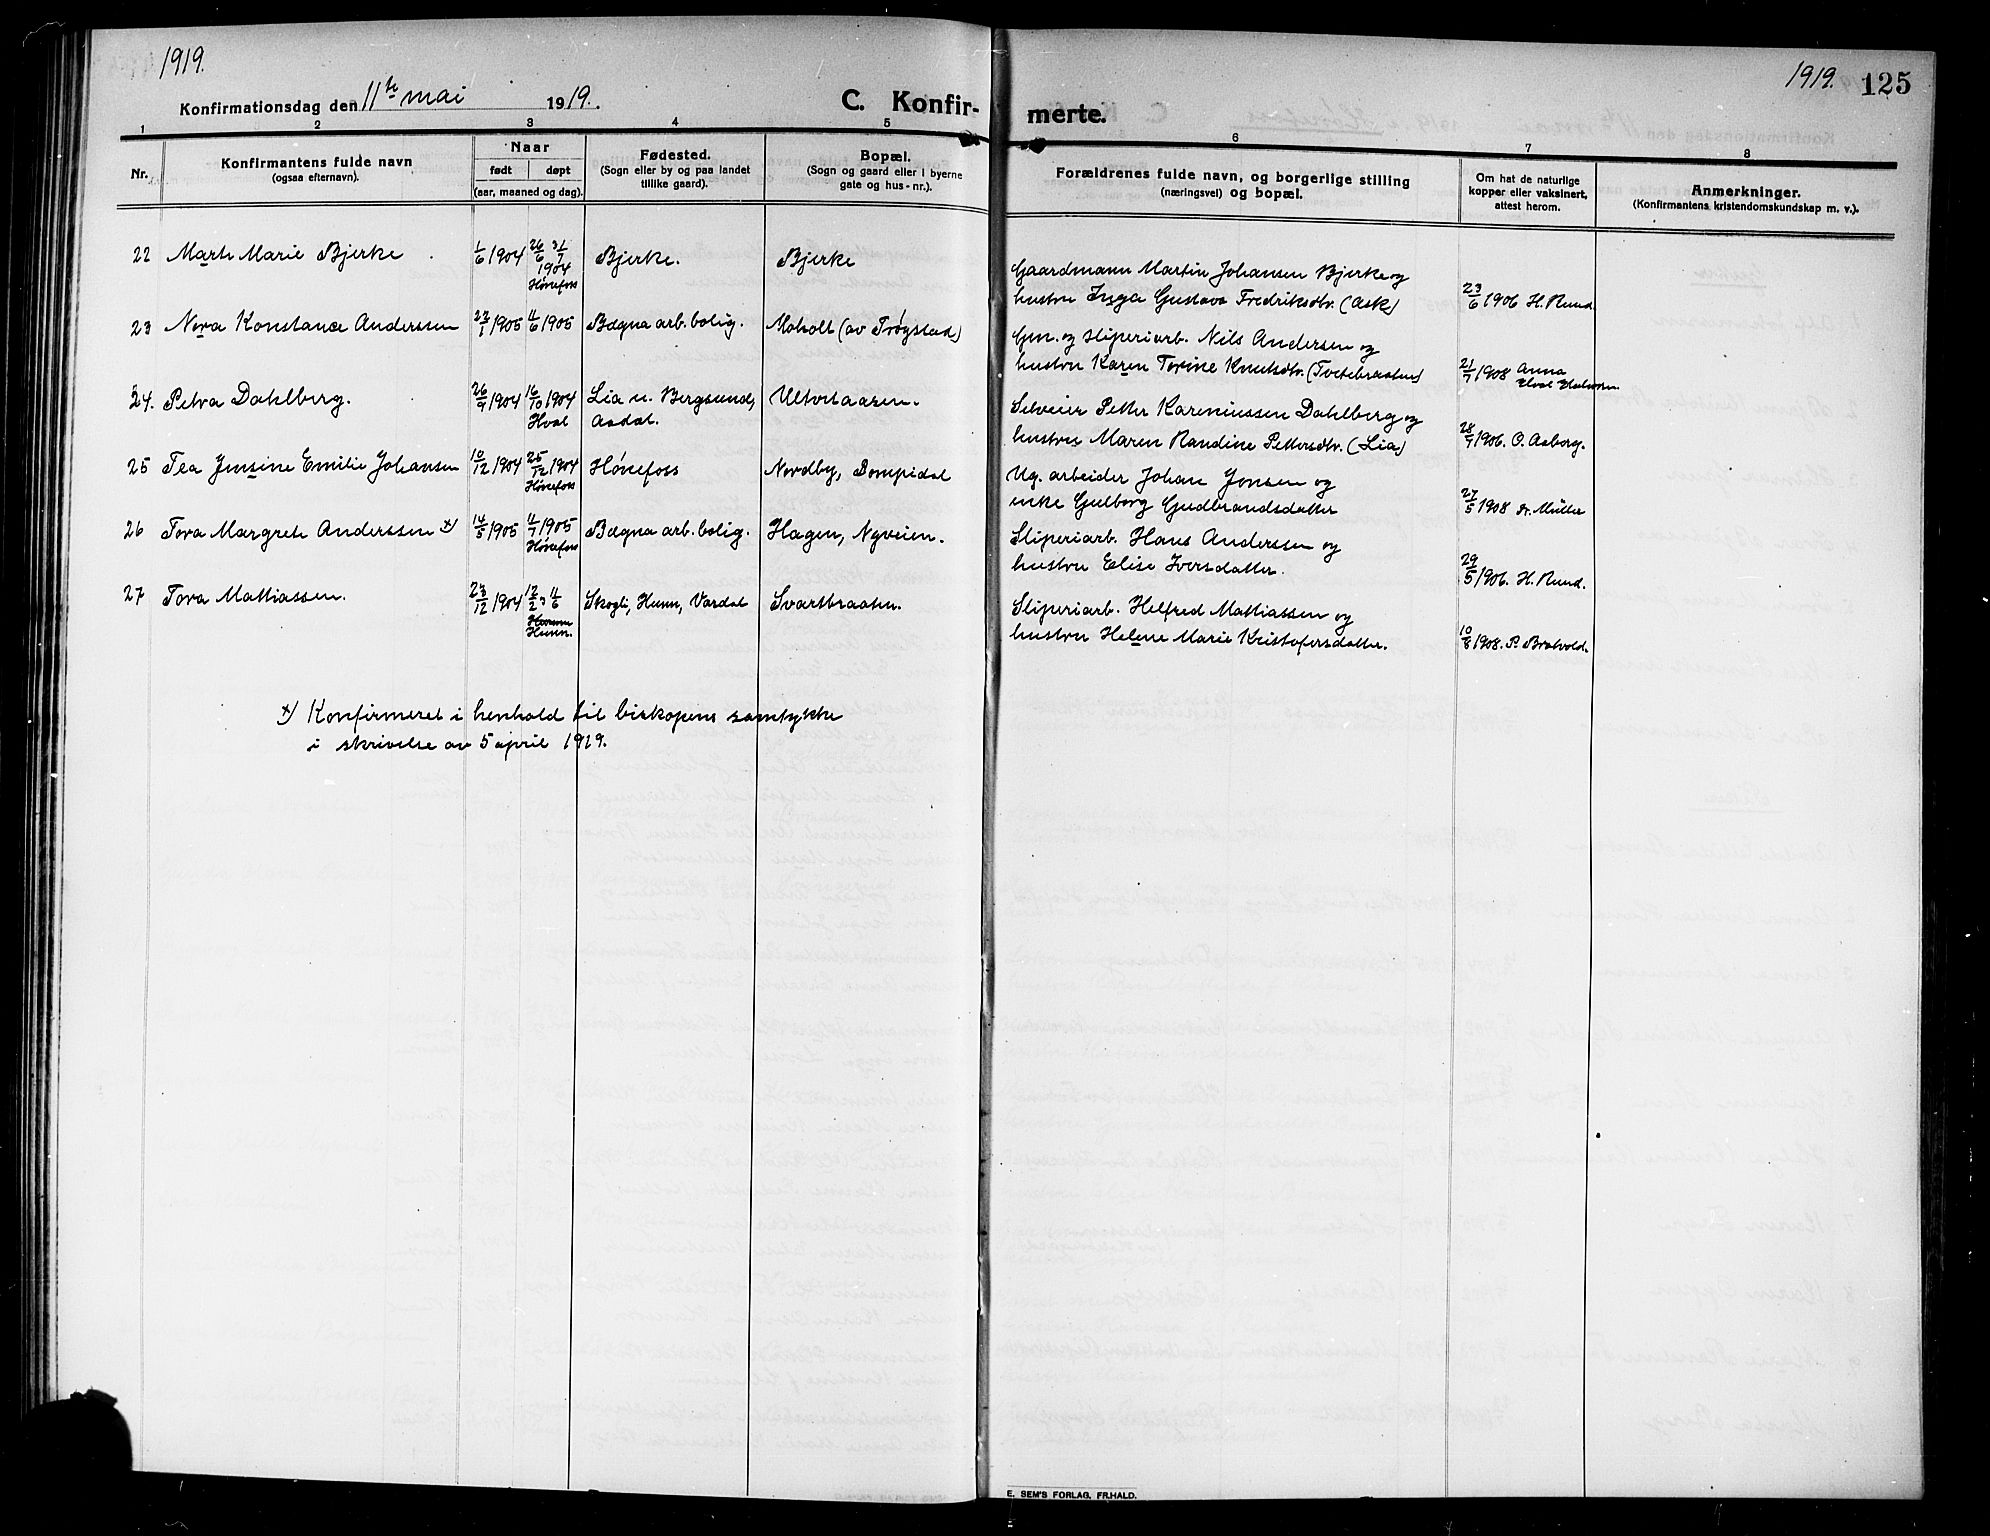 1919.
1919. 125
Konfirmationsdag den 11te mai 1919.
C. Konfir-
merte.
1 2 3 4 5 6 7 8
Nr.
Konfirmantens fulde navn
(ogsaa efternavn).
Naar
født døpt
(aar, maaned og dag).
Fødested.
(Sogn eller by og paa landet
tillike gaard).
Bopæl.
(Sogn og gaard eller i byerne
gate og hus-nr.).
Forældrenes fulde navn, og borgerlige stilling
(næringsvei) og bopæl.
Om hat de naturlige
kopper eller vaksinert,
attest herom.
Anmerkninger.
(Konfirmantens kristendomskundskap m. v.).
22 Marte Marie Bjerke 1/6 1904 26/6 31/7 1904 Hønefoss Bjerke. Bjerke
Gaardmann Martin Johansen Bjerke og
hustru Inga Gustava Fredriksdtr. (Ask) 23/6 1906 H. Ruud
23 Nora Konstance Anderssen 1905 4/6 1905 Bægna arb. bolig. Moholt (av Trøgstad)
Gm. og sliperiarb. Nils Andersen og
hustru Karen Torine Knutsdtr. (Tvetebraaten) 21/7 1908 Anna
24. Petra Dahlberg. 26/9 1904 16/10 1904 Hval Lia u. Bergsund, Aadal.
Selveier Petter Kareniussen Dahlberg og
hustru Maren Randine Pettersdtr. (Lia) 28/7 1906. O. Aaborg.
25 Tea Jensine Emilie Johansen 10/12 1904 25/12 1904 Hønefoss Hønefoss Nordby, Dompidal
Ug. arbeider Johan Jensen og
enke Gulborg Gudbrandsdatter 27/5 1908 dr. Müller
26 Tora Margrete Anderssen x) 14/5 1905 4/7 1905 Hønefoss Bægna arb. bolig. Hagen, Nyveien.
Sliperiarb. Hans Anderssen og
hustru Elise Iversdatter. 29/5 1906. H. Ruud.
27 Tora Mathiassen. 23/12 1904 12/2 & 4/6 Hunn. Skogli, Hunn, Vardal Svartbraaten.
Sliperiarb. Helfred Mathiassen og
hustru Helene Marie Kristofersdatter. 10/8 1908. P. Bratvold.
x) Konfirmeret i henhold til biskopens samtykke
i skrivelse av 5 april 1919.
E. SEM'S FORLAG, FR.HALD.